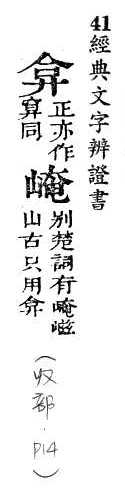 41 經典文字辨證書
弇
正亦作
同
崦
別楚詞有崦嵫
山古只用弇
(収部.P14)